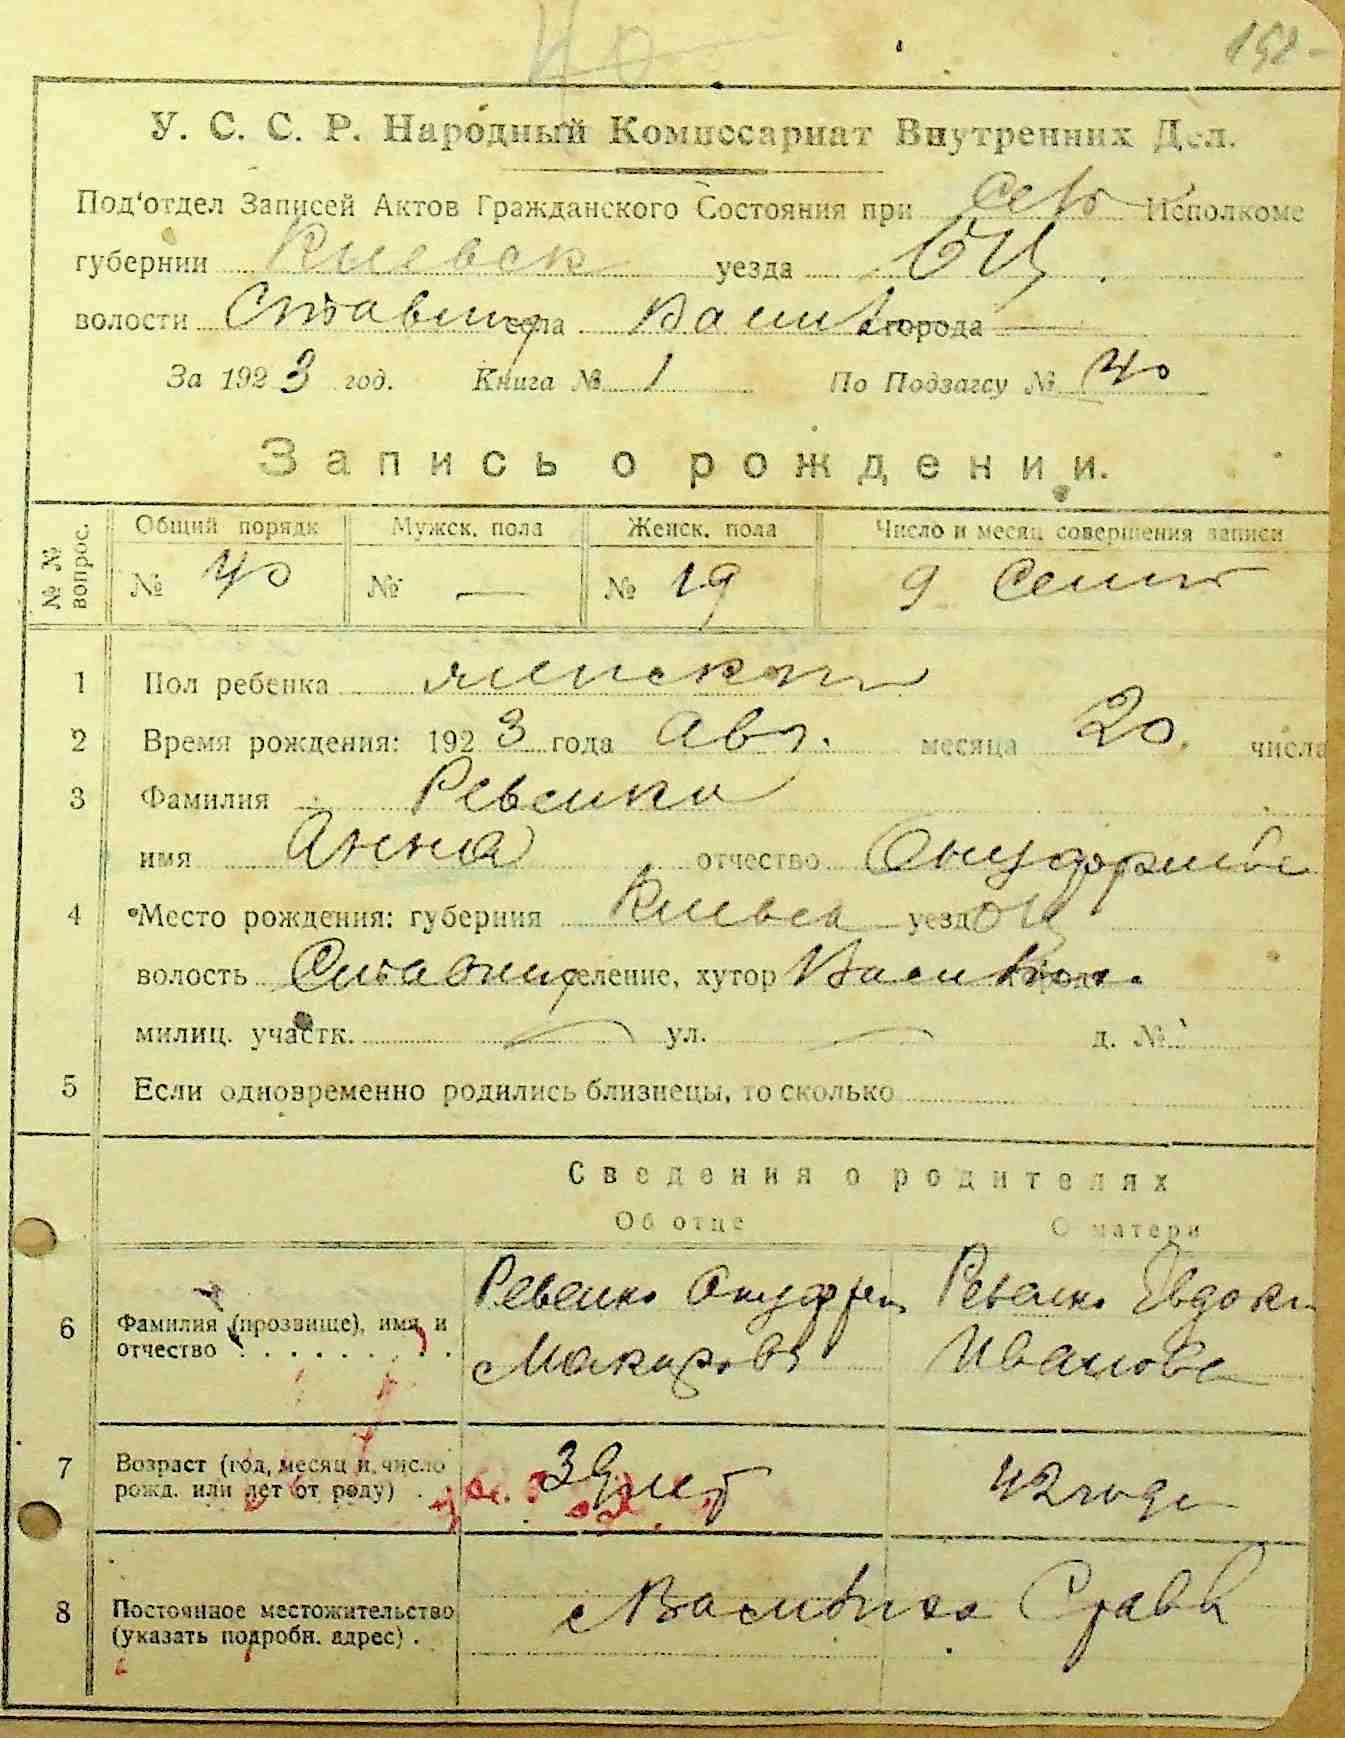 40
У. С. С. Р. Народный Комиссариат Внутренних Дел.
Под'отдел Записей Актов Гражданского Состояния при Исполкоме
губернии Киевск уезда БЦ
волости Ставищ села города
За 1923 год. Книга № 1 По Подзагсу № 40
Запись о рождении.
№ № вопрос.
Общий порядк Мужск. пола Женск. пола Число и месяц совершения записи
№ 40 № — № 19 9 Сент
1 Пол ребенка женский
2 Время рождения: 1923 года Авг. месяца 20 числа
3 Фамилия Ревенко
имя Анна отчество Онуфриев
4 Место рождения: губерния Киевск уезд БЦ
волость Ставищ селение, хутор
милиц. участк. ул. д. №
5 Если одновременно родились близнецы, то сколько
Сведения о родителях
Об отце О матери
6 Фамилия (прозвище), имя и отчество
Ревенко Онуфрий Макаров
Ревенко Евдоки Иванова
7 Возраст (год, месяц и число рожд. или лет от роду) .
39 лет
42 года
8 Постоянное местожительство (указать подробн. адрес) .